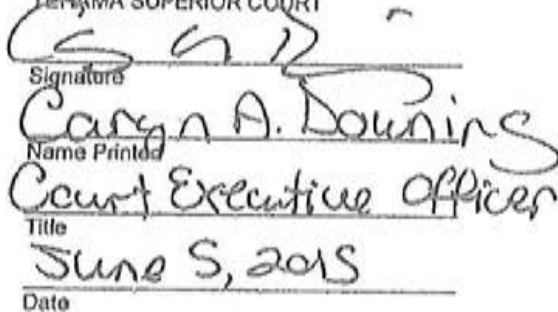 TEHAMA SUPERIOR COURT
Signature
Caryn A. Downing
Name Printed
Court Executive Officer
Title
June 5, 2015
Date